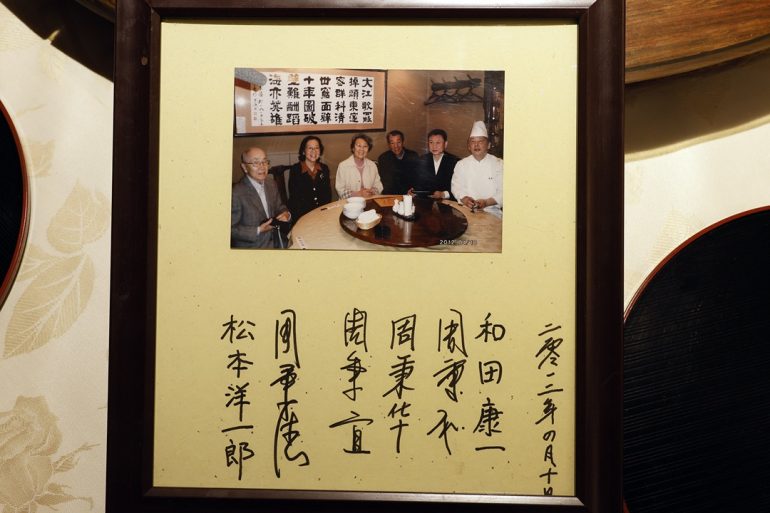 大江歌罷
掉頭東邃
密群科濟
世窮面壁
十年圖破
壁難酬蹈
海亦英雄
二零一二年四月十日
和田康一
周秉和
周秉华
周秉宜
周秉德
松本洋一郎